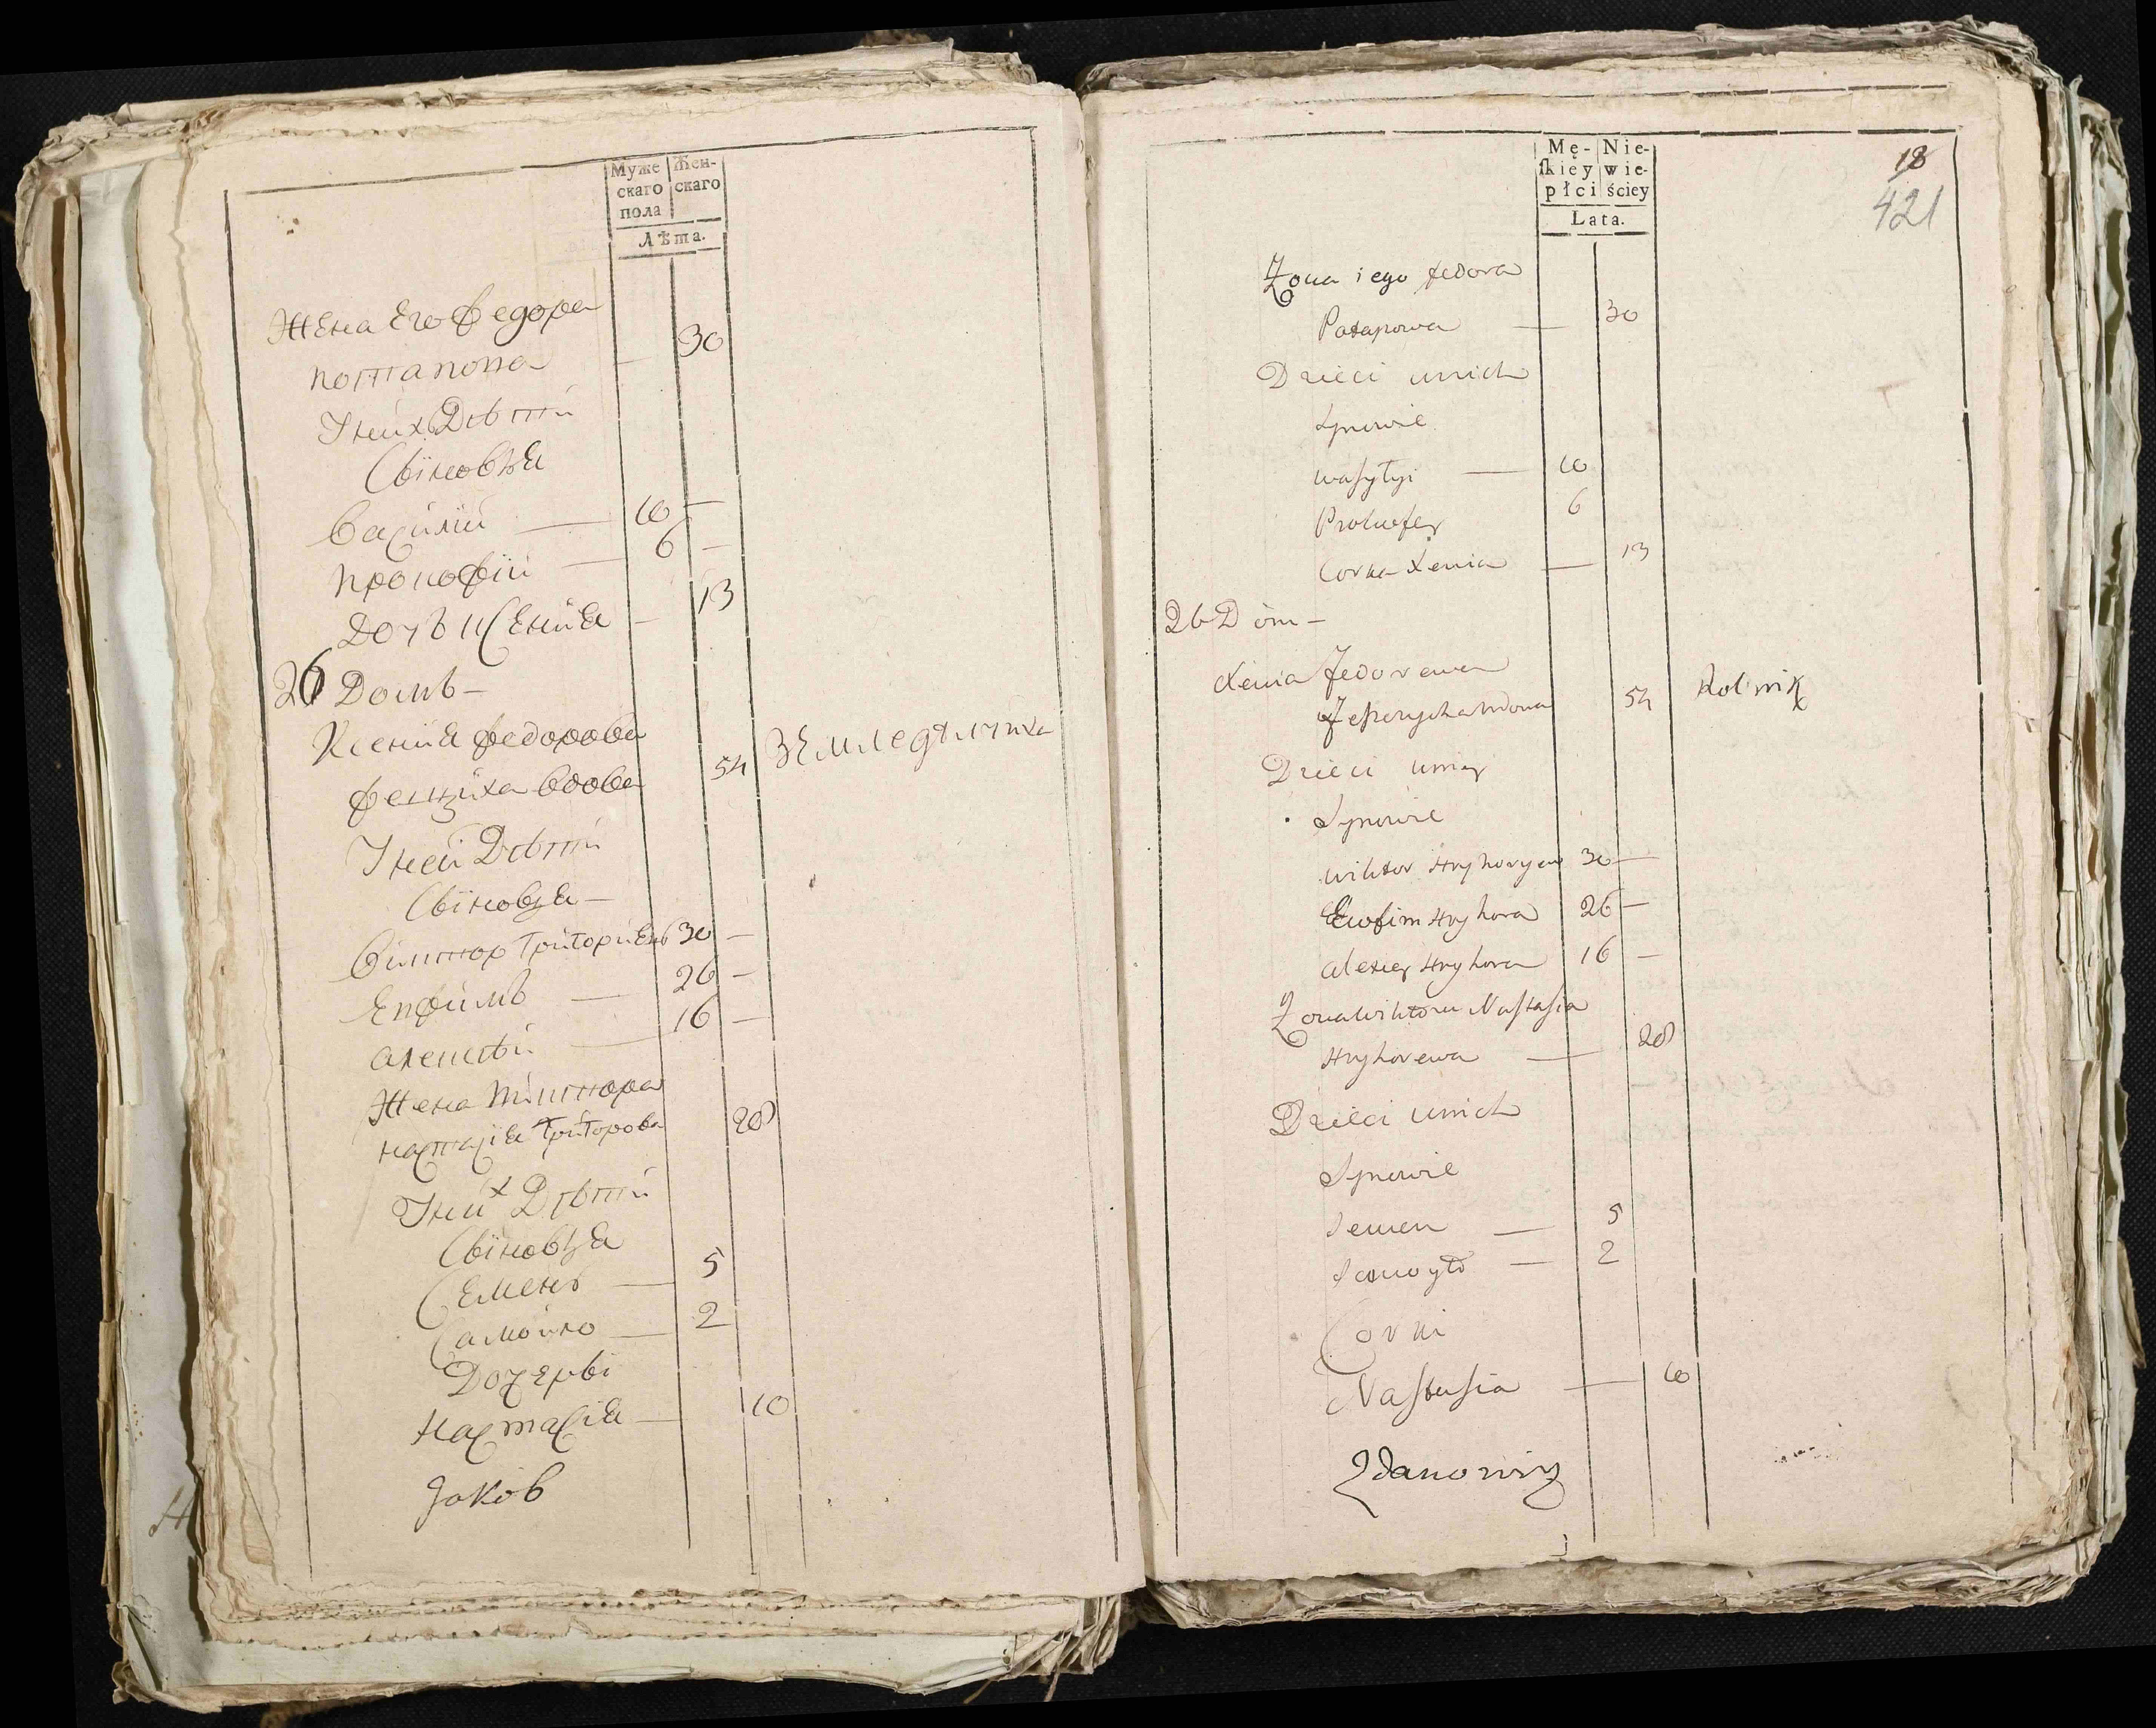 Муже Жен-
скаго скаго
пола
Лѣта.
Жена Его Федора
потапова — 30
У нихъ Дѣти
Сыновья
Василий — 10 —
прокофий — 6 —
Дочь ксения — 13
26 Домъ —
Ксения федорова
вдова 54
У ней Дѣти
Сыновья —
Виктор Григориевъ 30 —
Епфимъ — 26 —
алексѣй — 16 —
Жена Виктора
настасия Григорова 28
У них Дѣти
Сыновья
Семенъ — 5
Самойло — 2
Дочери
Настасия — 10
Jакоб
Mę- Nie-
skiéy wie-
płci ściey
Lata.
18
421
Zona iego fedora
Potapowa — 30
Dzieci unich
Synowie
wasylyi — 10
Prokofey 6
Corka Xenia — 13
26 Dom —
Xenia fedorowa
wdowa 54 Rolnik
Dzieci uniey
Synowie
wiktor Hryhoryew 30 —
Ewfim Hryhora 26 —
alexiey Hryhora 16 —
Zona wiktora Nastasia
Hryhorewa — 28
Dzieci unich
Synowie
Semen — 5
Samoyło — 2
Corki
Nastasia — 10
Zdanowicz